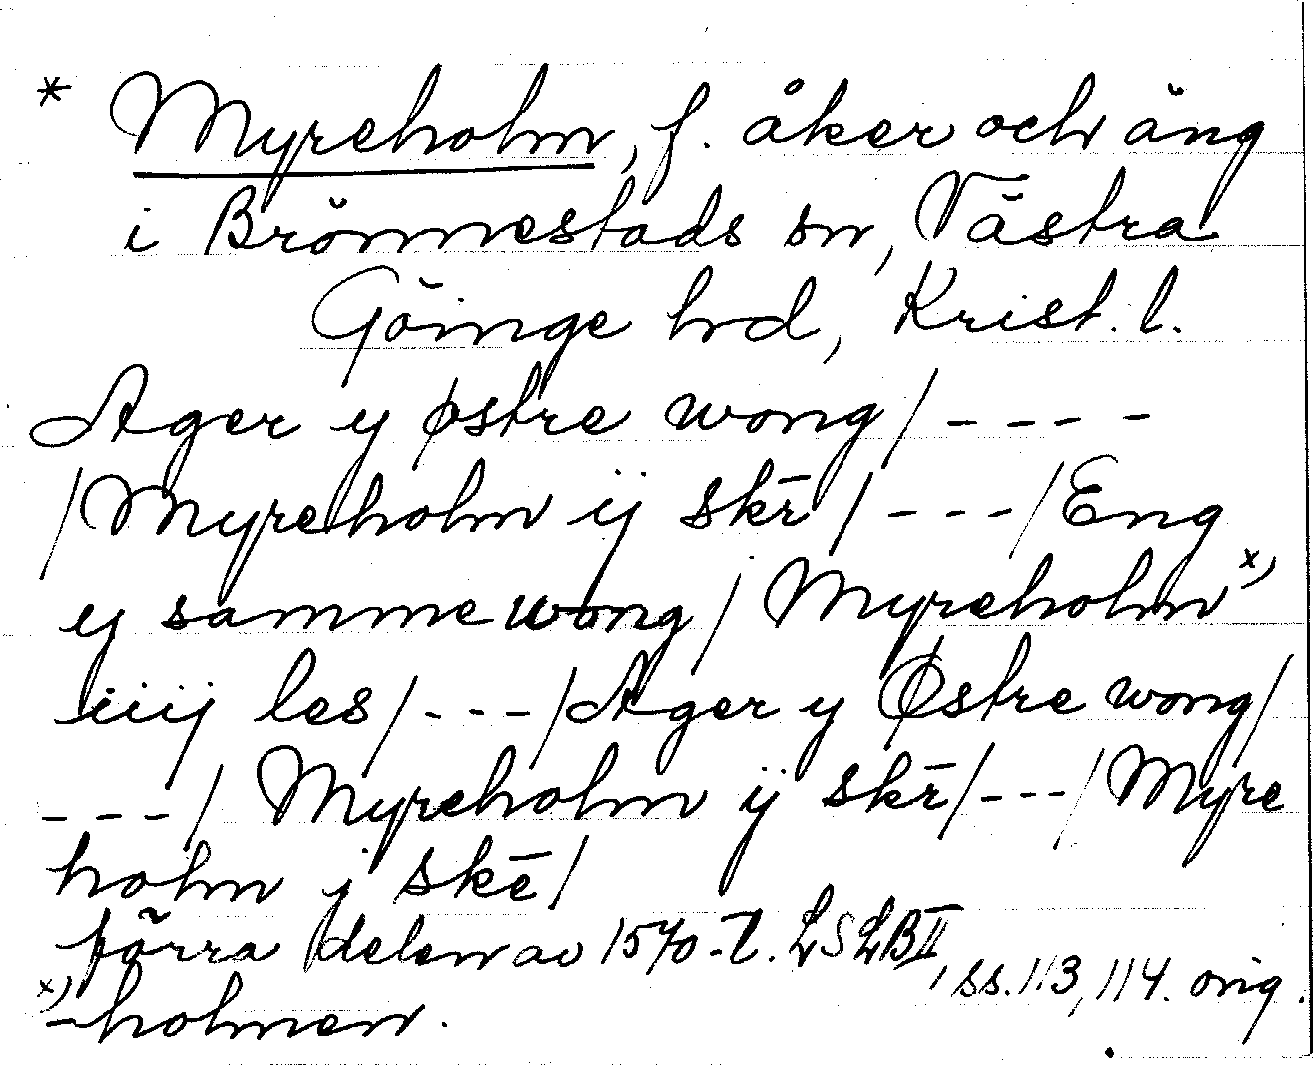 * Myreholm, f. åker och äng
i Brönnestads sn, Västra
Göinge hd, Krist. l.
Ager y østre wong / - - - -
/ Myreholm ij skr̄ / - - - / Eng
y samme wong / Myreholm x)
iiij les / - - - / Ager y Østre wong /
- - - / Myreholm ij skr̄ / - - - / Myre
holm j skē /
förra delen av 1570-t. LSLB II, ss. 113, 114. orig.
x) -holmen.